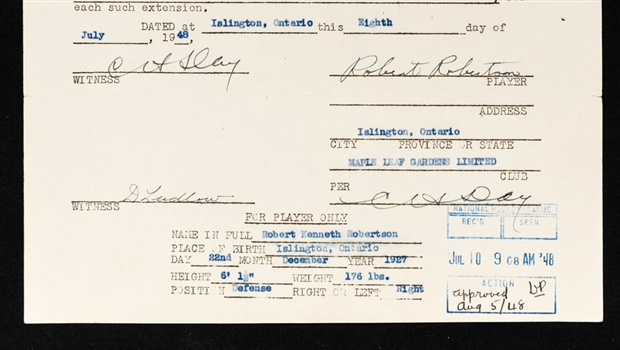 each such extension.
DATED at Islington, Ontario this Eighth day of
July, 1948,
C H Day Robert Robertson
WITNESS PLAYER
ADDRESS
Islington, Ontario
CITY PROVINCE OR STATE
MAPLE LEAF GARDENS LIMITED
CLUB
PER
D Ludlow C H Day
WITNESS
FOR PLAYER ONLY
NAME IN FULL Robert Kenneth Robertson
PLACE OF BIRTH Islington, Ontario
DAY 22nd MONTH December YEAR 1927
HEIGHT 6' 1½" WEIGHT 176 lbs.
POSITION Defense RIGHT OR LEFT Right
NATIONAL HOCKEY LEAGUE
REC'D SEEN
JUL 10 9 08 AM '48
ACTION
approved
Aug 5/48